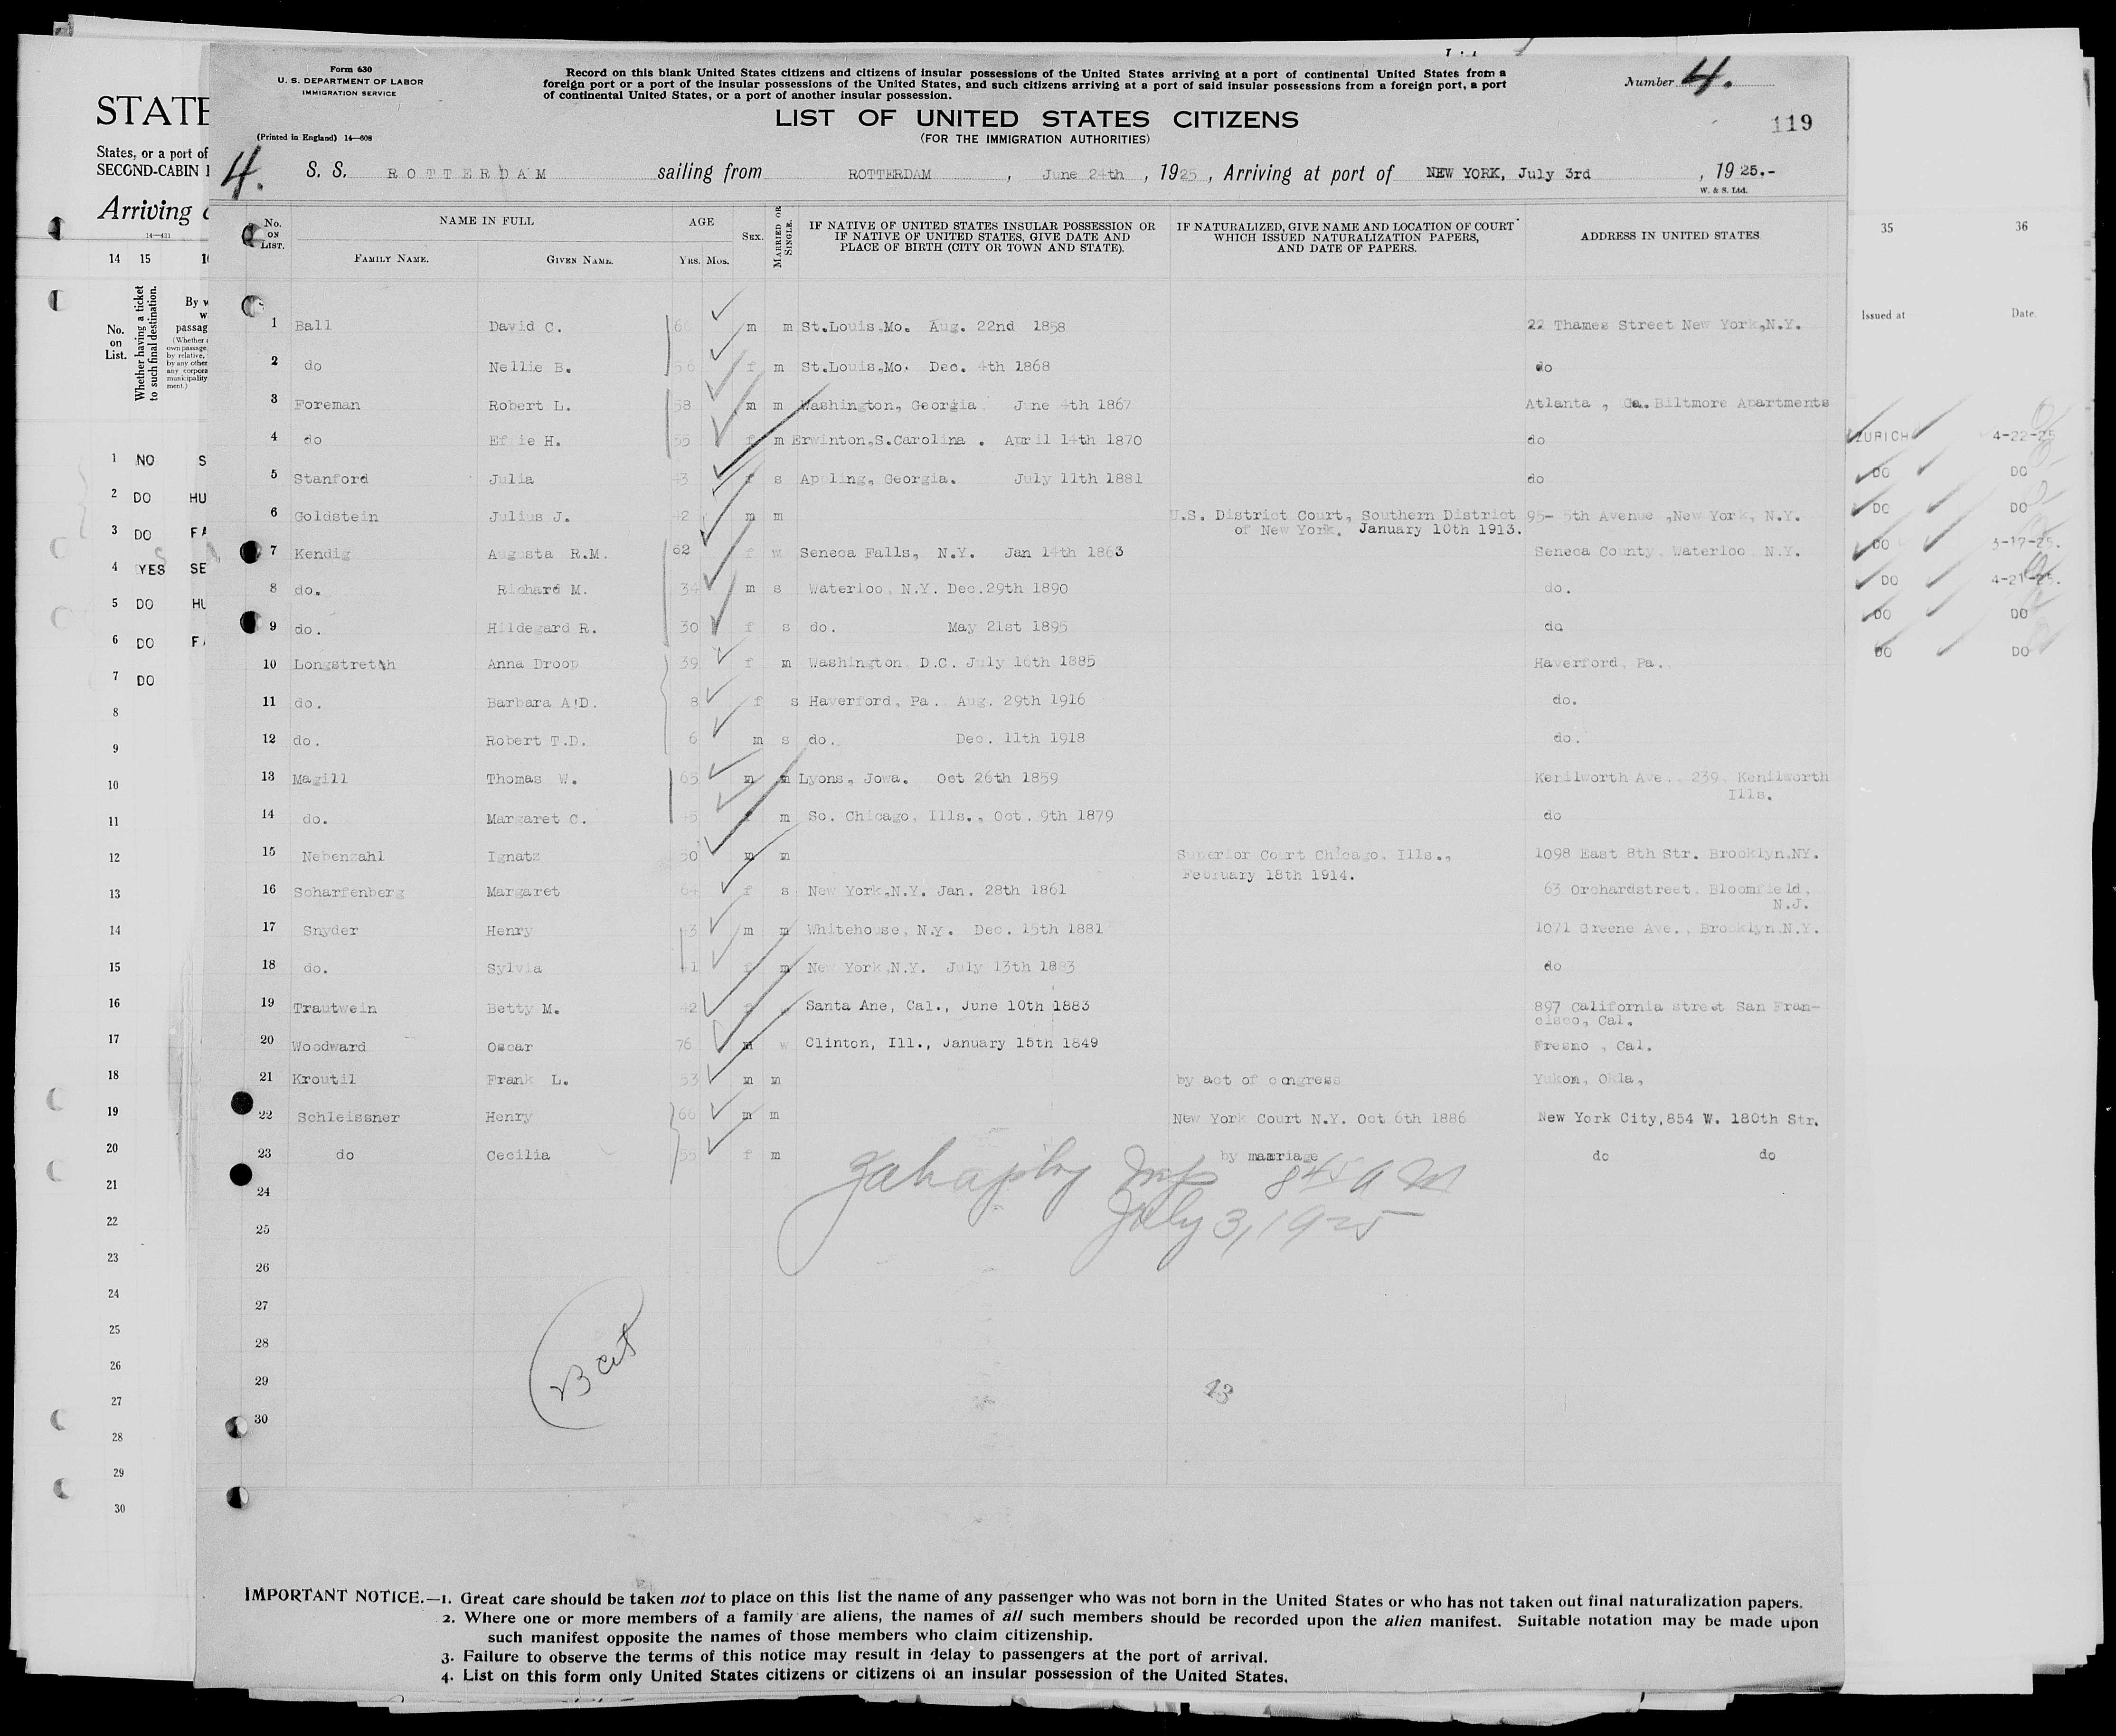 Form 630
U. S. DEPARTMENT OF LABOR
IMMIGRATION SERVICE
(Printed in England) 14—608
Record on this blank United States citizens and citizens of insular possessions of the United States arriving at a port of continental United States from a
foreign port or a port of the insular possessions of the United States, and such citizens arriving at a port of said insular possessions from a foreign port, a port
of continental United States, or a port of another insular possession.
Number 4.
LIST OF UNITED STATES CITIZENS
(FOR THE IMMIGRATION AUTHORITIES)
119
4. S. S. ROTTERDAM sailing from ROTTERDAM, June 24th, 1925, Arriving at port of NEW YORK, July 3rd, 1925.-
W. & S. Ltd.
No. ON LIST. NAME IN FULL AGE SEX. MARRIED OR SINGLE. IF NATIVE OF UNITED STATES INSULAR POSSESSION OR IF NATIVE OF UNITED STATES, GIVE DATE AND PLACE OF BIRTH (CITY OR TOWN AND STATE). IF NATURALIZED, GIVE NAME AND LOCATION OF COURT WHICH ISSUED NATURALIZATION PAPERS, AND DATE OF PAPERS. ADDRESS IN UNITED STATES
FAMILY NAME. GIVEN NAME. YRS. MOS.
1 Ball David C. 66 m m St.Louis,Mo. Aug. 22nd 1858 22 Thames Street New York,N.Y.
2 do Nellie B. 56 f m St.Louis,Mo. Dec. 4th 1868 do
3 Foreman Robert L. 58 m m Washington, Georgia June 4th 1867 Atlanta , Ga. Biltmore Apartments
4 do Effie H. 55 f m Erwinton,S.Carolina . April 14th 1870 do
5 Stanford Julia 43 f s Appling, Georgia. July 11th 1881 do
6 Goldstein Julius J. 42 m m U.S. District Court, Southern District 95- 5th Avenue ,New York, N.Y.
of New York. January 10th 1913.
7 Kendig Augusta R.M. 62 f w Seneca Falls, N.Y. Jan 14th 1863 Seneca County, Waterloo N.Y.
8 do. Richard M. 34 m s Waterloo, N.Y. Dec.29th 1890 do.
9 do. Hildegard R. 30 f s do. May 21st 1895 do
10 Longstretth Anna Droop 39 f m Washington D.C. July 16th 1885 Haverford, Pa.
11 do. Barbara A.D. 8 f s Haverford, Pa. Aug. 29th 1916 do.
12 do. Robert T.D. 6 m s do. Dec. 11th 1918 do.
13 Magill Thomas W. 65 m m Lyons, Jowa. Oct 26th 1859 Kenilworth Ave., 239, Kenilworth
Ills.
14 do. Margaret C. 45 f m So. Chicago, Ills., Oct. 9th 1879 do
15 Nebenzahl Ignatz 50 m m Superior Court Chicago, Ills., 1098 East 8th Str. Brooklyn,NY.
February 18th 1914.
16 Scharfenberg Margaret 64 f s New York,N.Y. Jan. 28th 1861 63 Orchardstreet, Bloomfield,
N.J.
17 Snyder Henry 43 m m Whitehouse, N.Y. Dec. 15th 1881 1071 Greene Ave., Brooklyn N.Y.
18 do. Sylvia 41 f m New York,N.Y. July 13th 1883 do
19 Trautwein Betty M. 42 f Santa Ane, Cal., June 10th 1883 897 California street San Fran-
cisco, Cal.
20 Woodward Oscar 76 m w Clinton, Ill., January 15th 1849 Fresno , Cal.
21 Kroutil Frank L. 53 m m by act of congress Yukon, Okla,
22 Schleissner Henry 66 m m New York Court N.Y. Oct 6th 1886 New York City,854 W. 180th Str.
23 do Cecilia 55 f m by marriage do do
845 A M
July 3, 1925
24
25
26
27
28
29
30
23
IMPORTANT NOTICE.—1. Great care should be taken not to place on this list the name of any passenger who was not born in the United States or who has not taken out final naturalization papers.
2. Where one or more members of a family are aliens, the names of all such members should be recorded upon the alien manifest. Suitable notation may be made upon
such manifest opposite the names of those members who claim citizenship.
3. Failure to observe the terms of this notice may result in delay to passengers at the port of arrival.
4. List on this form only United States citizens or citizens of an insular possession of the United States.
STATE
States, or a port of
SECOND-CABIN
Arriving
14—421
14 15
No. on List.
Whether having a ticket to such final destination.
By w
passag
(Whether
own passage,
by relative,
by any other
any corpora
municipality
ment.)
1 NO S
2 DO HU
3 DO FA
4 YES SE
5 DO HU
6 DO F
7 DO
8
9
10
11
12
13
14
15
16
17
18
19
20
21
22
23
24
25
26
27
28
29
30
35 36
Issued at Date.
ZURICH 4-22-25
DO DO
DO DO
DO 3-17-25.
DO 4-21-25.
DO DO
DO DO